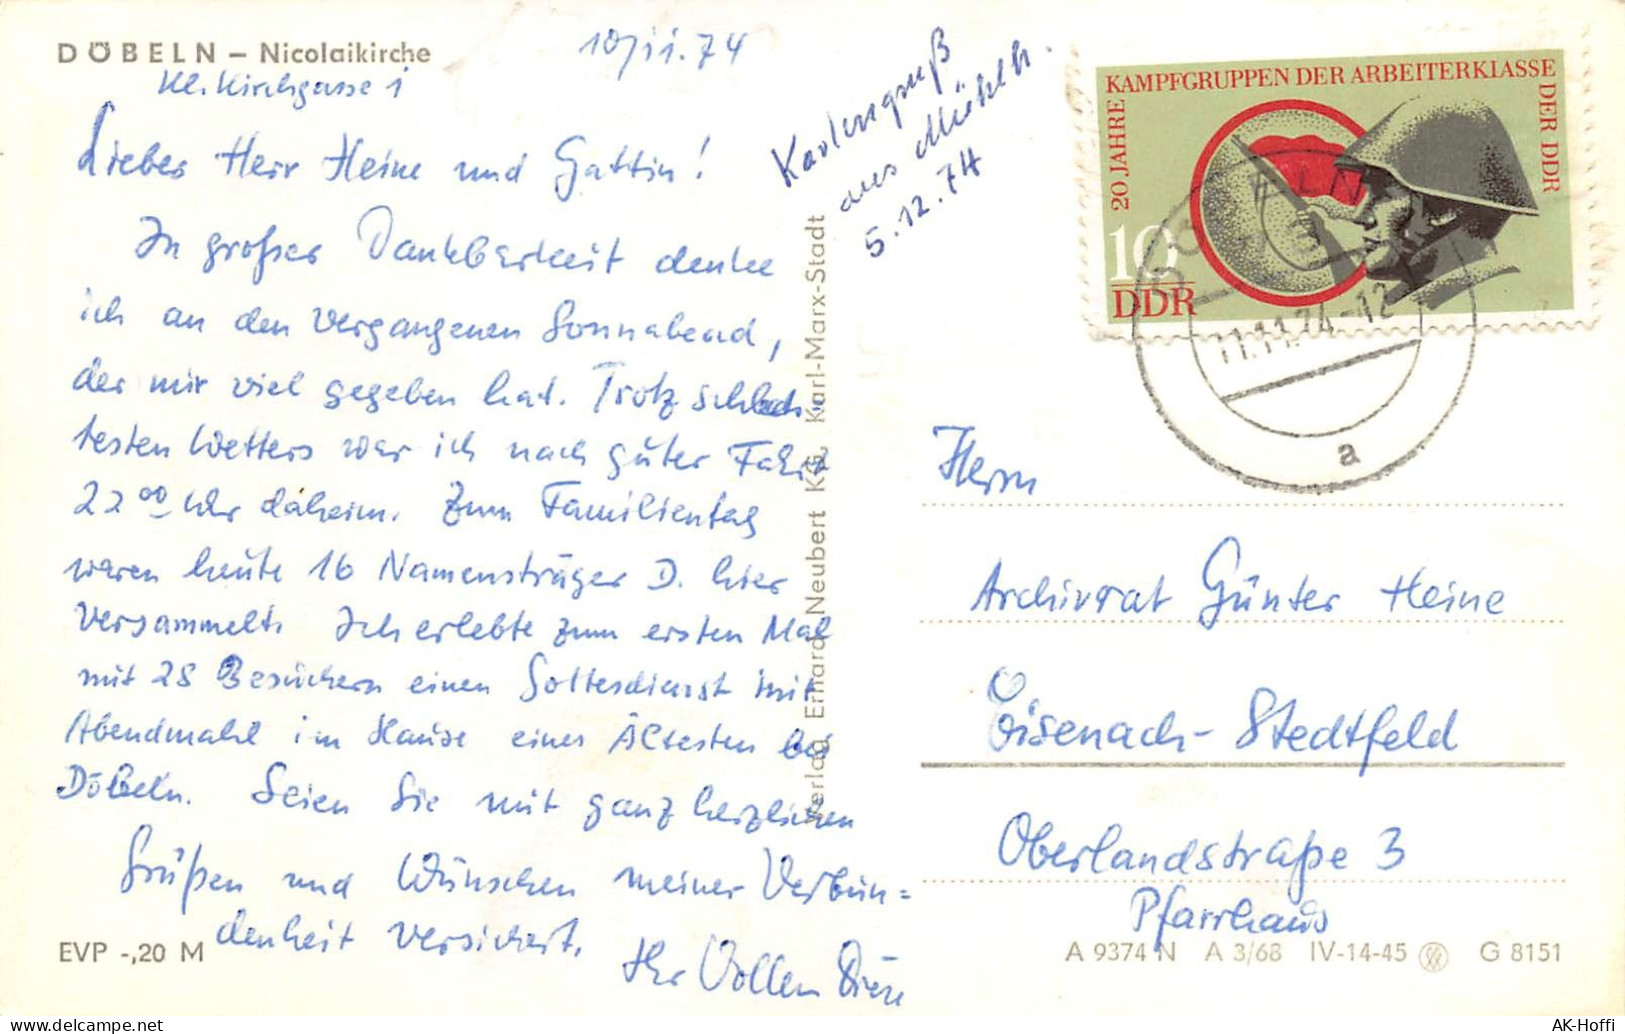 DÖBELN – Nicolaikirche
Kl. Kirchgasse 1
10/11.74
Lieber Herr Heine und Gattin!
In großer Dankbarkeit denke
ich an den vergangenen Sonnabend,
der mir viel gegeben hat. Trotz schlech-
testen Wetters war ich nach guter Fahrt
22 00 Uhr daheim. Zum Familientag
waren heute 16 Namensträger D. hier
versammelt. Ich erlebte zum ersten Mal
mit 28 Besuchern einen Gottesdienst mit
Abendmahl im Hause einer Ältesten bei
Döbeln. Seien Sie mit ganz herzlichen
Grüßen und Wünschen meiner Verbun=
denheit versichert.
Ihr
EVP -,20 M
Kartengruß
aus
5.12.74
Verlag Erhard Neubert KG, Karl-Marx-Stadt
20 JAHRE KAMPFGRUPPEN DER ARBEITERKLASSE DER DDR
10
DDR
11.11.74-12
a
Herrn
Archivrat Günter Heine
Eisenach-Stedtfeld
Oberlandstraße 3
Pfarrhaus
A 9374 N A 3/68 IV-14-45 G 8151
AK-Hoffi